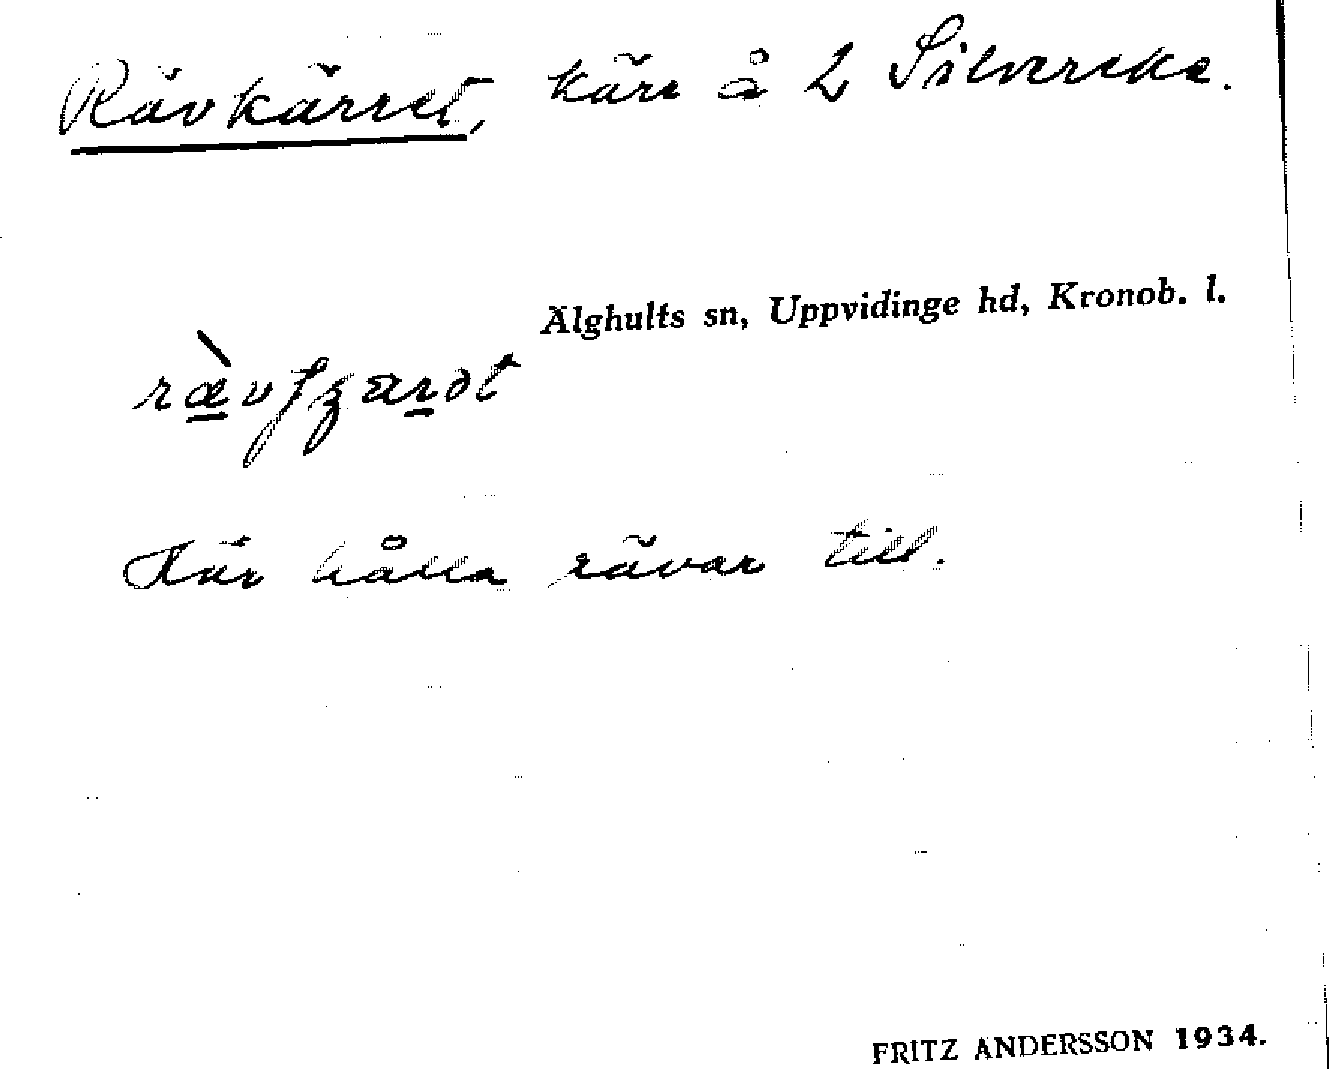 Rävkärret, kärr å L Silvereke.
Älghults sn, Uppvidinge hd, Kronob. l.
Här hålla rävar till.
FRITZ ANDERSSON 1934.